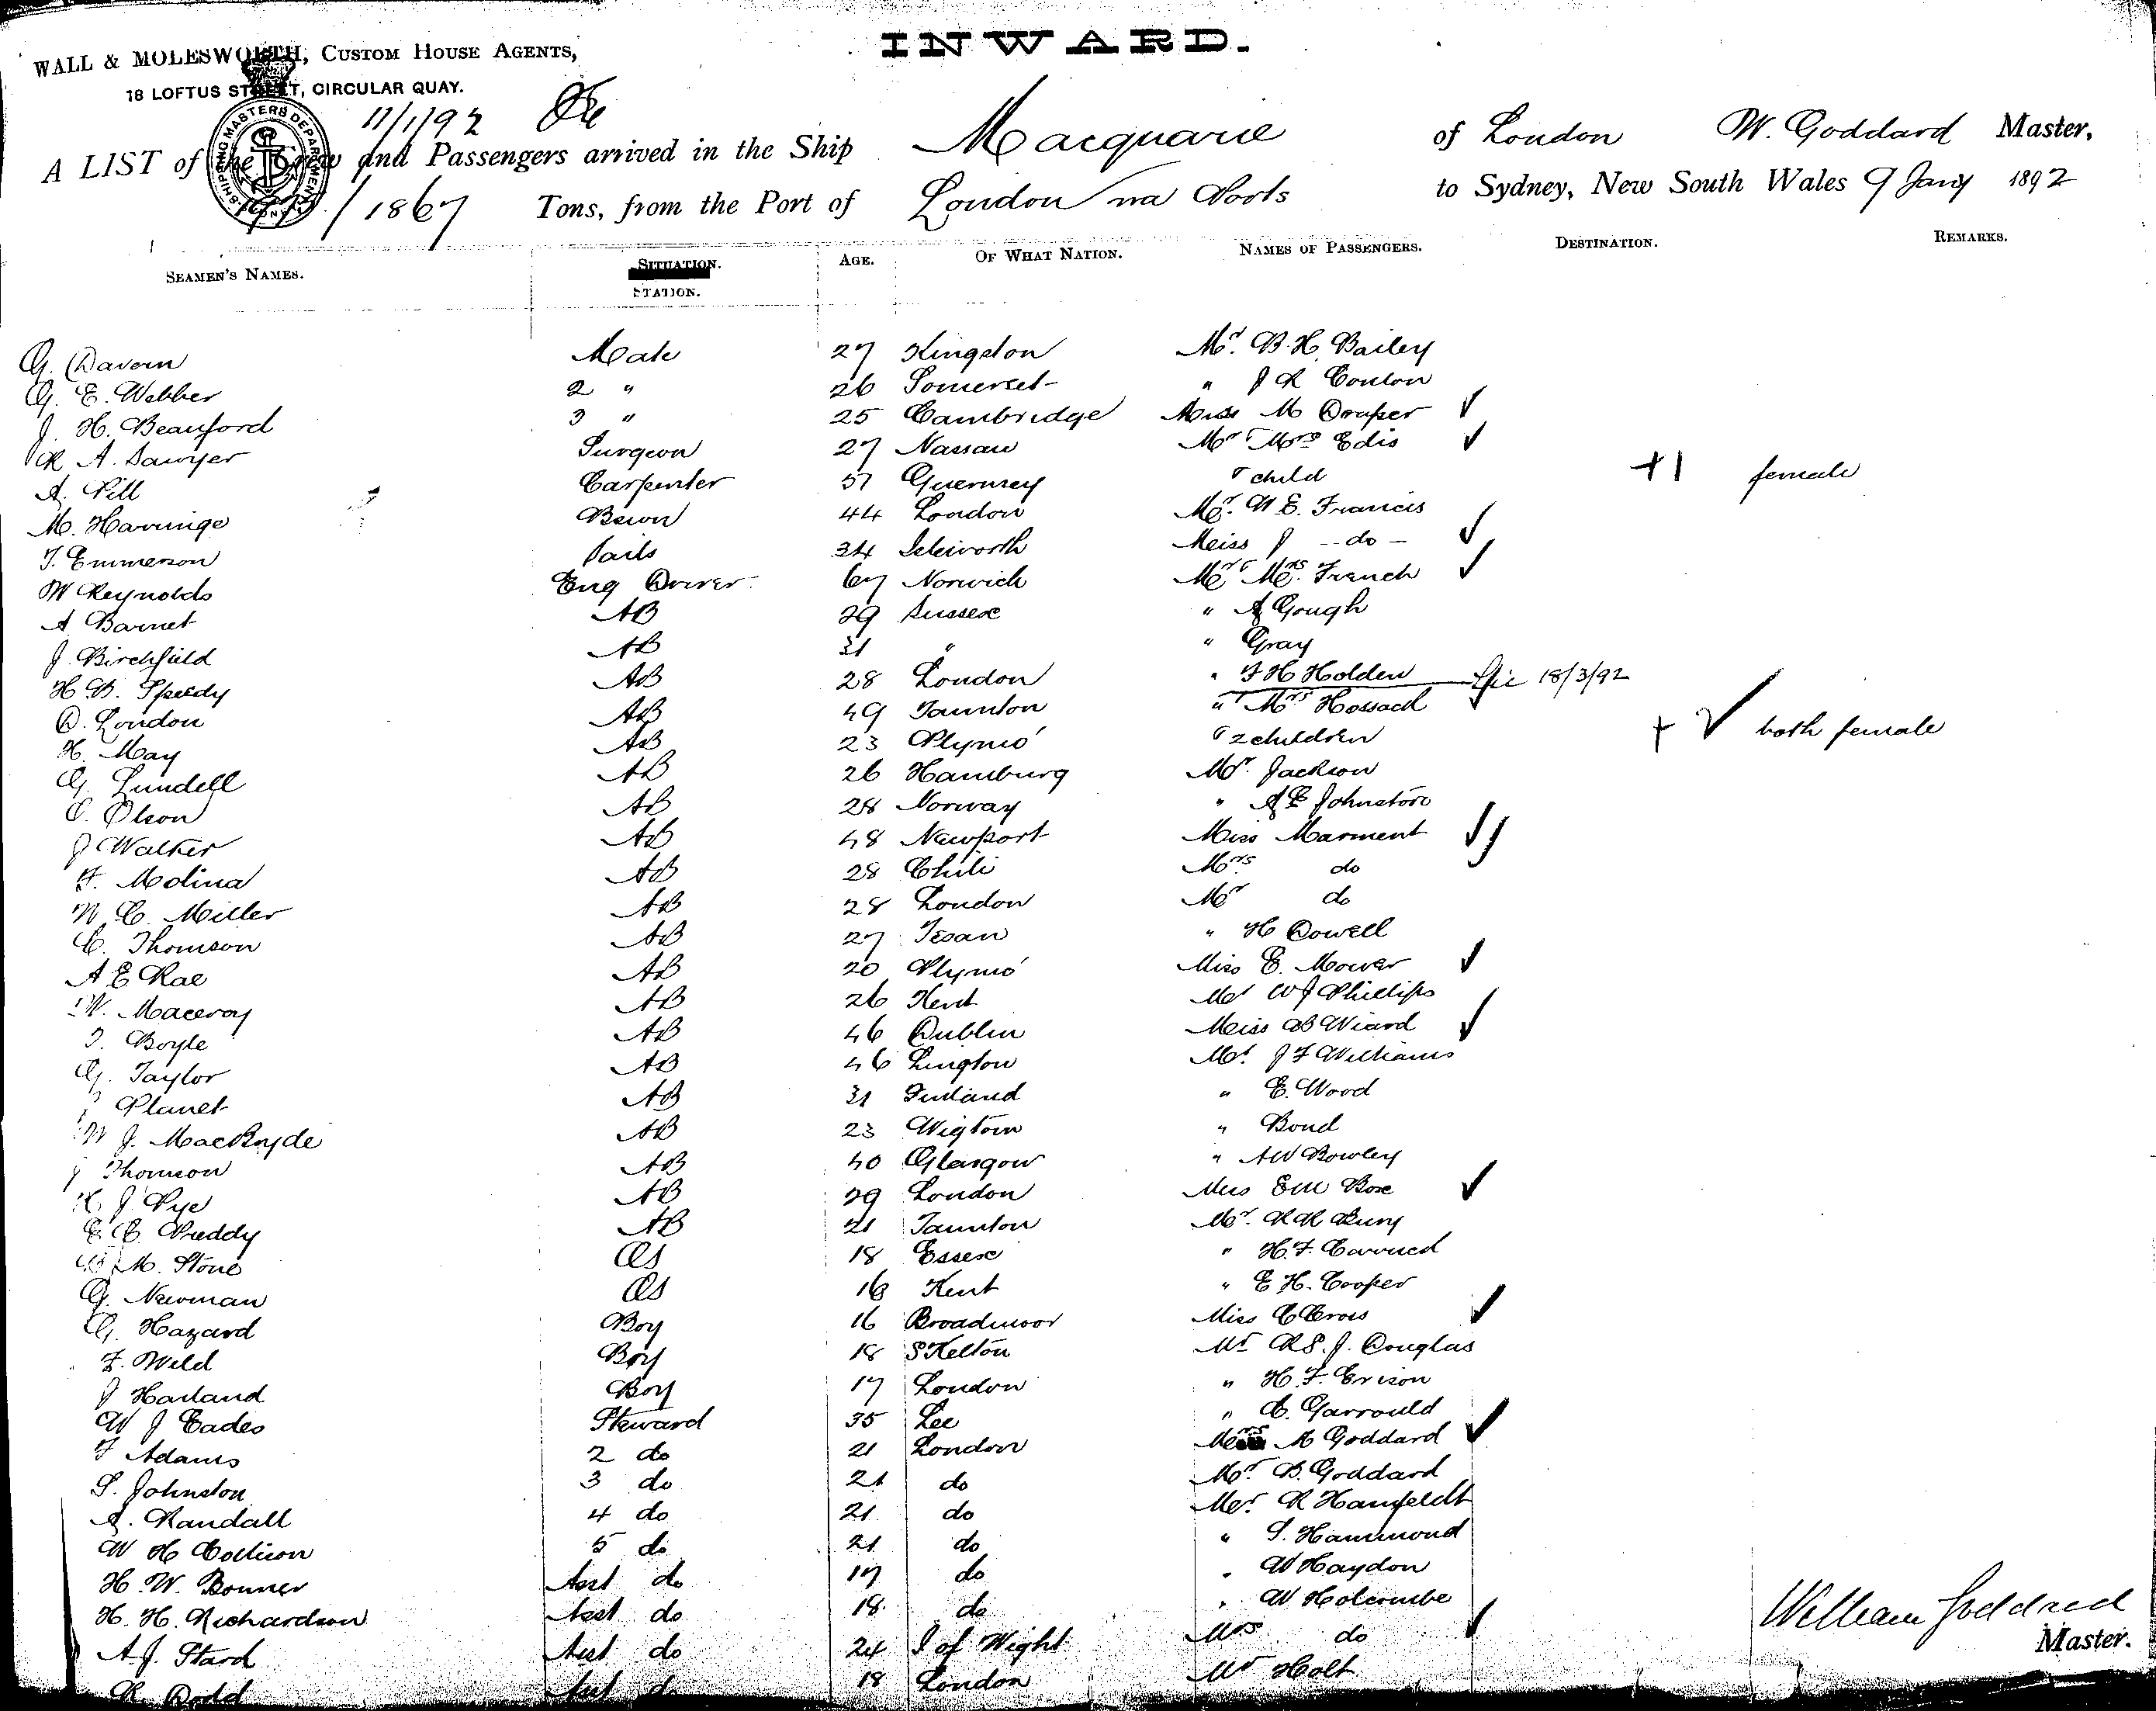 INWARD.
WALL & MOLESWORTH, CUSTOM HOUSE AGENTS,
18 LOFTUS STREET, CIRCULAR QUAY.
SHIPPING MASTERS DEPARTMENT
11/1/92
A LIST of the Crew and Passengers arrived in the Ship Macquarie of London W. Goddard Master,
1867 Tons, from the Port of London via Ports to Sydney, New South Wales 9 Jany 1892
SEAMEN'S NAMES. SITUATION. STATION. AGE. OF WHAT NATION. NAMES OF PASSENGERS. DESTINATION. REMARKS.
G. Davern Mate 27 Kingston Mr. B. H. Bailey
G. E. Webber 2 " 26 Somerset " J R Conlon
J. H. Beauford 3 " 25 Cambridge Miss M Draper
R A. Sawyer Surgeon 27 Nassau Mr & Mrs Edis
A. Pill Carpenter 57 Guernsey & child +1 female
M. Harringe Bswn 44 London Mr. W E. Francis
T. Emmerson Sails 34 Isleworth Miss J -- do --
W Reynolds Eng Driver 67 Norwich Mr & Mrs. French
A Barnet AB 29 Sussex " A Gough
J. Birchfield AB 31 " " Gray
H B. Speedy AB 28 London " F H Holden 18/3/92
D. London AB 49 Taunton " & Mrs Hossack
H. May AB 23 Plymo' & 2 children + 2 both female
G. Lundell AB 26 Hamburg Mr. Jackson
C. Olson AB 28 Norway " A E Johnston
J Walker AB 48 Newport Miss Marment
F. Molina AB 28 Chili Mrs do
W. C. Miller AB 28 London Mr do
C. Thomson AB 27 " H Dowell
A E Rae AB 20 Plymo' Miss E. Mower
W. Maceroy AB 26 Kent Mr W J Phillips
T. Boyle AB 46 Dublin Miss B Wiard
G. Taylor AB 46 Lington Mr. J F Williams
Planet AB 31 Finland " E. Wood
W J. MacBryde AB 23 Wigtown " Bond
J Thomson AB 40 Glasgow " A W Bowley
H J Pye AB 29 London Miss E M Box
E C Preddy AB 21 Taunton Mr. R R Bury
M. Stone OS 18 Essex " H. F. Carvred
G. Newman OS 18 Kent " E H. Cooper
G. Hazard Boy 16 Broadmoor Miss C Cross
F. Weld Boy 18 Skelton Mr R S. J. Douglas
J Harland Boy 17 London " H. F. Erison
W J Eades Steward 35 Lee " C. Garrould
F Adams 2 do 21 London Mrs M Goddard
S. Johnston 3 do 21 do Mr. B. Goddard
A. Randall 4 do 21 do Mr. R Hamfeldt
W H Collison 5 do 21 do " S. Hammond
H. W. Bonner Asst do 17 do " W Haydon
H. H. Richardson Asst do 18 do " W Holcombe
A. J. Stard Asst do 24 I of Wight Mrs do
R. Dodd Asst do 18 London Mr Holt
William Goddard
Master.